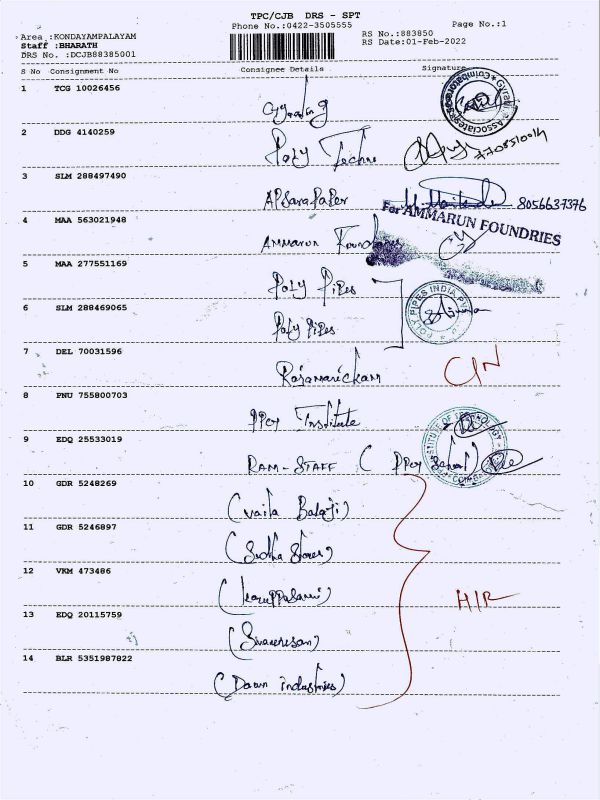 TPC/CJB DRS - SPT
Phone No.:0422-3505555 Page No.:1
Area :KONDAYAMPALAYAM RS No.:883850
Staff :BHARATH RS Date:01-Feb-2022
DRS No. :DCJB88385001
S No Consignment No Consignee Details Signature
1 TCG 10026456
2 DDG 4140259
Poly Techno 7708510014
3 SLM 288497490
APSara PaPer 8056637376
For AMMARUN FOUNDRIES
4 MAA 563021948
Ammarun Foundries
5 MAA 277551169
Poly Pipes
POLY PIPES INDIA
6 SLM 288469065
Poly Pipes
7 DEL 70031596
Rajamanickam
8 PNU 755800703
PPCY Institute
9 EDQ 25533019
RAM-STAFF ( PPCY School)
10 GDR 5248269
(Vaila Balaji)
11 GDR 5246897
(Sudha Stores)
12 VKM 473486
(karuppasami) H/R
13 EDQ 20115759
14 BLR 5351987822
(Dawn industries)